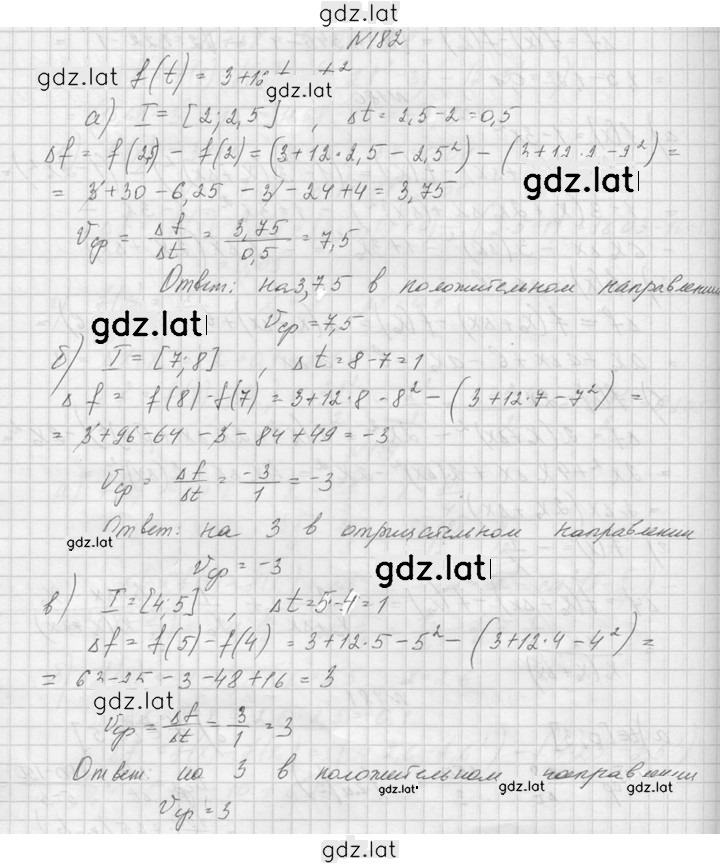 gdz.lat
№182
gdz.lat f(t) = 3+12t - t²
gdz.lat
а) I = [2; 2,5] , Δt = 2,5-2 = 0,5
Δf = f(2,5) - f(2) = (3+12·2,5 - 2,5²) - (3+12·2-2²) =
gdz.lat
= 3+30-6,25 - 3 - 24+4 = 3,75
Vср = Δf/Δt = 3,75/0,5 = 7,5
Ответ: на 3,75 в положительном направлении
gdz.lat
Vср = 7,5
б) I = [7; 8] , Δt = 8-7=1
Δf = f(8)-f(7) = 3+12·8-8² - (3+12·7-7²) =
= 3+96-64 - 3 - 84+49 = -3
Vср = Δf/Δt = -3/1 = -3
Ответ: на 3 в отрицательном направлении
gdz.lat
Vср = -3
gdz.lat
в) I = [4; 5] , Δt = 5-4 = 1
Δf = f(5) - f(4) = 3+12·5-5² - (3+12·4-4²) =
= 63-25 - 3 - 48+16 = 3
gdz.lat
Vср = Δf/Δt = 3/1 = 3
Ответ: на 3 в положительном направлении
gdz.lat gdz.lat gdz.lat
Vср = 3
gdz.lat